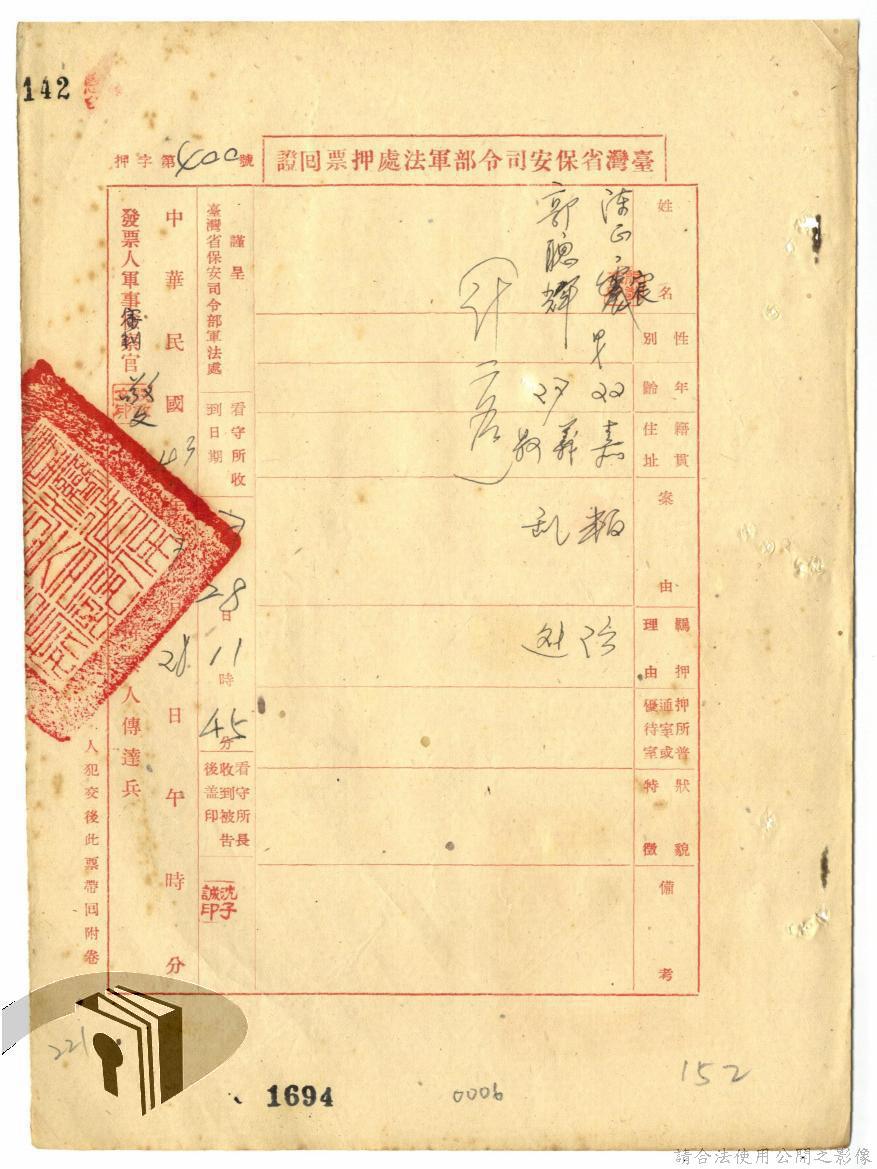 142
臺灣省保安司令部軍法處押票囘證
押字第400號
姓名
性別
年齡
籍貫住址
案由
羈押理由
押所普通室或優待室
狀貌特徵
備考
宸
男
22
嘉
叛
郭聰輝
27
義
乱
計二名
謹呈
臺灣省保安司令部軍法處
看守所收到日期
28日11時45分
看守所長收到被告後盖印
沈子誠印
中華民國43
28日午時分
發票人軍事審判官
人傳達兵
人犯交後此票帶囘附卷
221
1694
0006
152
請合法使用公開之影像